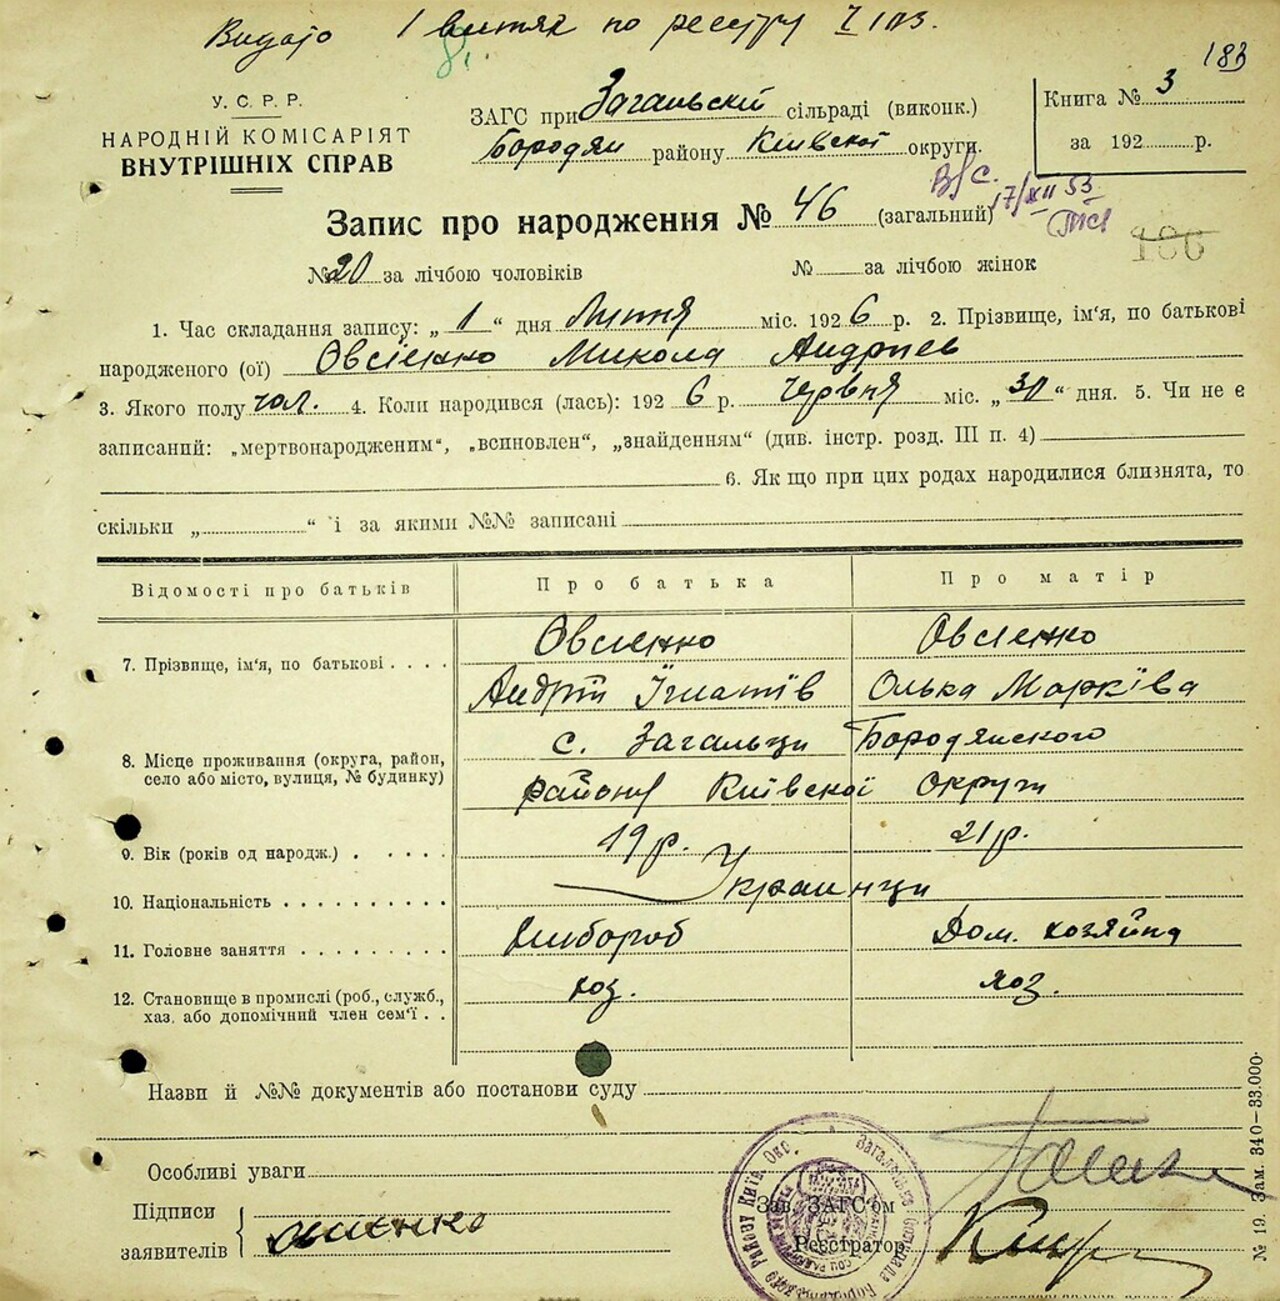 Видано 1 витяг по реєстру
183
У. С. Р. Р.
НАРОДНІЙ КОМІСАРІЯТ
ВНУТРІШНІХ СПРАВ
ЗАГС при Загальскій сільраді (виконк.)
Бородян району Київскої округи.
Книга № 3
за 192 р.
17/XII 53
Запис про народження № 46 (загальний)
186
№ 20 за лічбою чоловіків № за лічбою жінок
1. Час складання запису: „ 1 “ дня Липня міс. 192 6 р. 2. Прізвище, ім'я, по батькові
народженого (ої) Овсієнко Микола Андриев
3. Якого полу чол. 4. Коли народився (лась): 192 6 р. Червня міс. „ 30 “ дня. 5. Чи не є
записаний: „мертвонародженим“, „всиновлен“, „знайденням“ (див. інстр. розд. III п. 4)
6. Як що при цих родах народилися близнята, то
скільки „ “ і за якими №№ записані
Відомості про батьків Про батька Про матір
Овсиенко Овсиенко
7. Прізвище, ім'я, по батькові
Андрій Їгнатїв Олька Маркїва
с. Загальци Бородянского
8. Місце проживання (округа, район,
село або місто, вулиця, № будинку)
району Київскої Округи
9. Вік (років од народж.) 19 р. 21 р.
10. Національність Украинци
11. Головне заняття Хлибороб Дом. хозяйка
12. Становище в промислі (роб., служб., хоз. хоз.
хаз. або допомічний член сем'ї
Назви й №№ документів або постанови суду
Особливі уваги
Підписи
заявителів
Зав. ЗАГС'ом
Реєстратор
№ 19. Зам. 340—33.000.